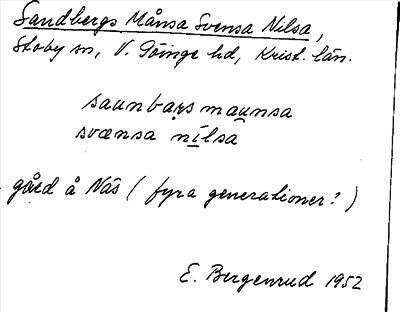 Sandbergs Månsa Svensa Nilsa,
Stoby sn, V. Göinge hd, Krist. län.
saunbarsmaunsa
svænsa nilsa
gård å Näs (fyra generationer?)
E. Bergenrud 1952